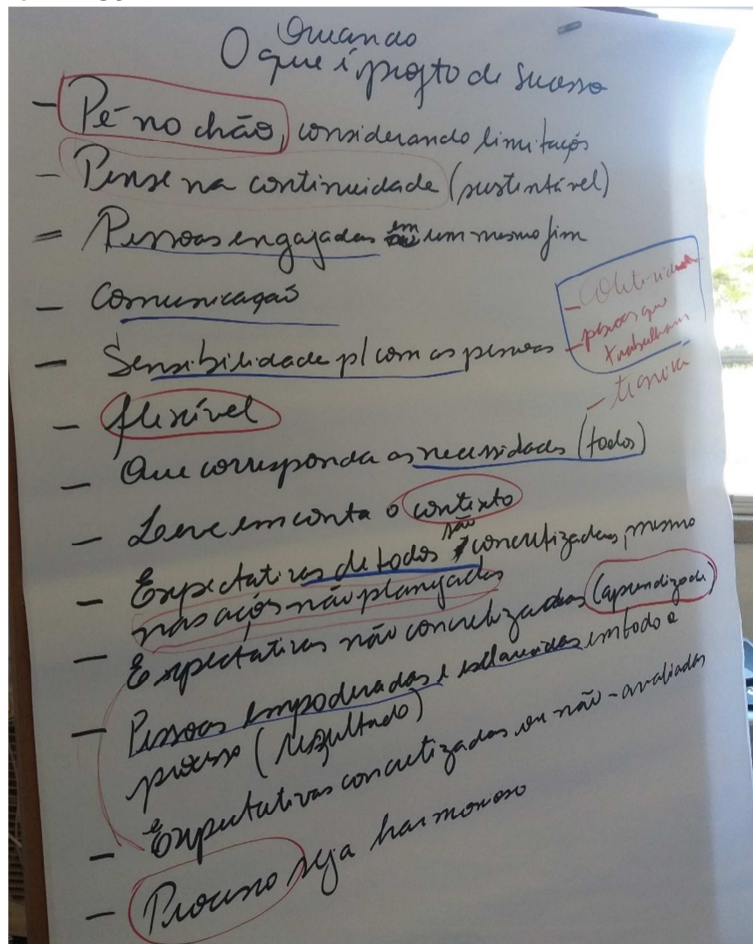 Quando
O que é projto de sucesso
- Pé-no chão, considerando limitações
- Pense na continuidade (sustentável)
= Pessoas engajadas em um mesmo fim
- Comunicação
- Sensibilidade p/ com as pessoas
- continuidade
- pessoas que
trabalham
- técnica
- flexível
- Que corresponda as necessidades (todos)
- Leve em conta o contexto
- Expectativas de todos são concretizadas, mesmo
nas ações não planejadas
- Expectativas não concretizadas (aprendizado)
- Pessoas empoderadas e esclarecidas em todo o
processo (resultado)
- Expectativas concretizadas ou não - avaliadas
- Processo seja harmonioso